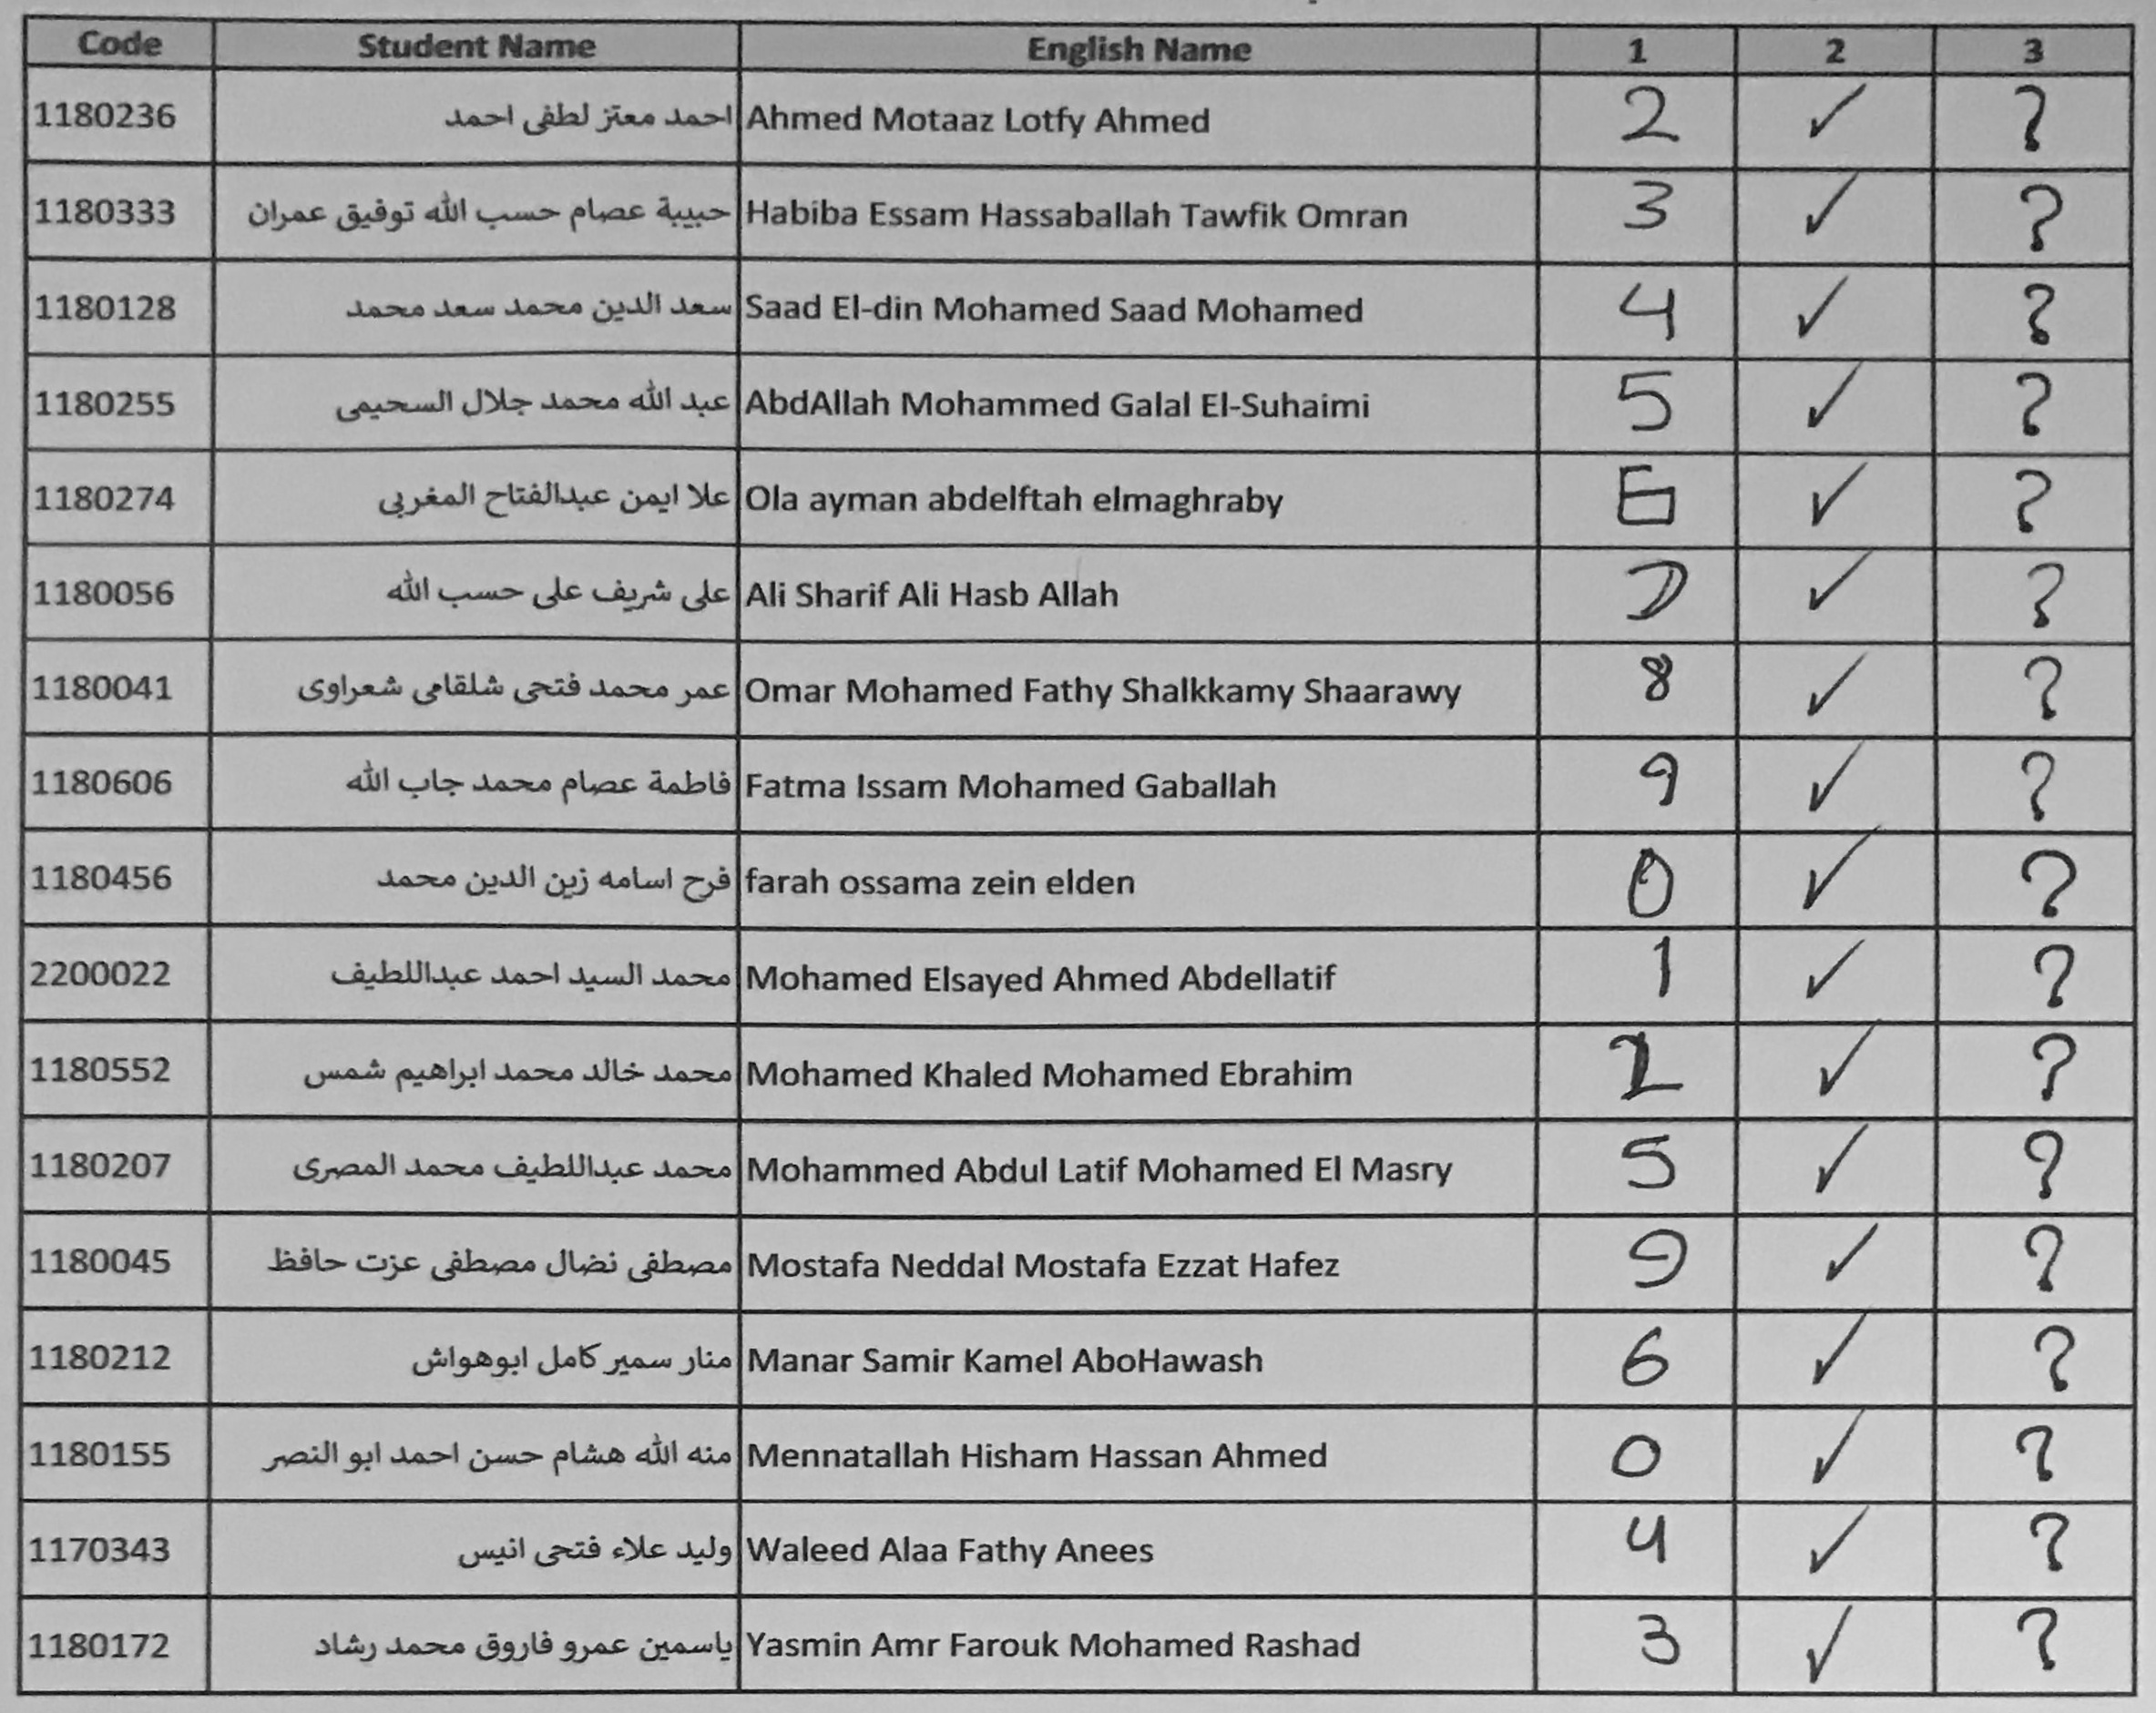 Code Student Name English Name 1 2 3
1180236 احمد معتز لطفى احمد Ahmed Motaaz Lotfy Ahmed 2 ✓ ?
1180333 حبيبة عصام حسب الله توفيق عمران Habiba Essam Hassaballah Tawfik Omran 3 ✓ ?
1180128 سعد الدين محمد سعد محمد Saad El-din Mohamed Saad Mohamed 4 ✓ ?
1180255 عبد الله محمد جلال السحيمى AbdAllah Mohammed Galal El-Suhaimi 5 ✓ ?
1180274 علا ايمن عبدالفتاح المغربى Ola ayman abdelftah elmaghraby 6 ✓ ?
1180056 على شريف على حسب الله Ali Sharif Ali Hasb Allah 7 ✓ ?
1180041 عمر محمد فتحى شلقامى شعراوى Omar Mohamed Fathy Shalkkamy Shaarawy 8 ✓ ?
1180606 فاطمة عصام محمد جاب الله Fatma Issam Mohamed Gaballah 9 ✓ ?
1180456 فرح اسامه زين الدين محمد farah ossama zein elden 0 ✓ ?
2200022 محمد السيد احمد عبداللطيف Mohamed Elsayed Ahmed Abdellatif 1 ✓ ?
1180552 محمد خالد محمد ابراهيم شمس Mohamed Khaled Mohamed Ebrahim 2 ✓ ?
1180207 محمد عبداللطيف محمد المصرى Mohammed Abdul Latif Mohamed El Masry 5 ✓ ?
1180045 مصطفى نضال مصطفى عزت حافظ Mostafa Neddal Mostafa Ezzat Hafez 9 ✓ ?
1180212 منار سمير كامل ابوهواش Manar Samir Kamel AboHawash 6 ✓ ?
1180155 منه الله هشام حسن احمد ابو النصر Mennatallah Hisham Hassan Ahmed 0 ✓ ?
1170343 وليد علاء فتحى انيس Waleed Alaa Fathy Anees 4 ✓ ?
1180172 ياسمين عمرو فاروق محمد رشاد Yasmin Amr Farouk Mohamed Rashad 3 ✓ ?